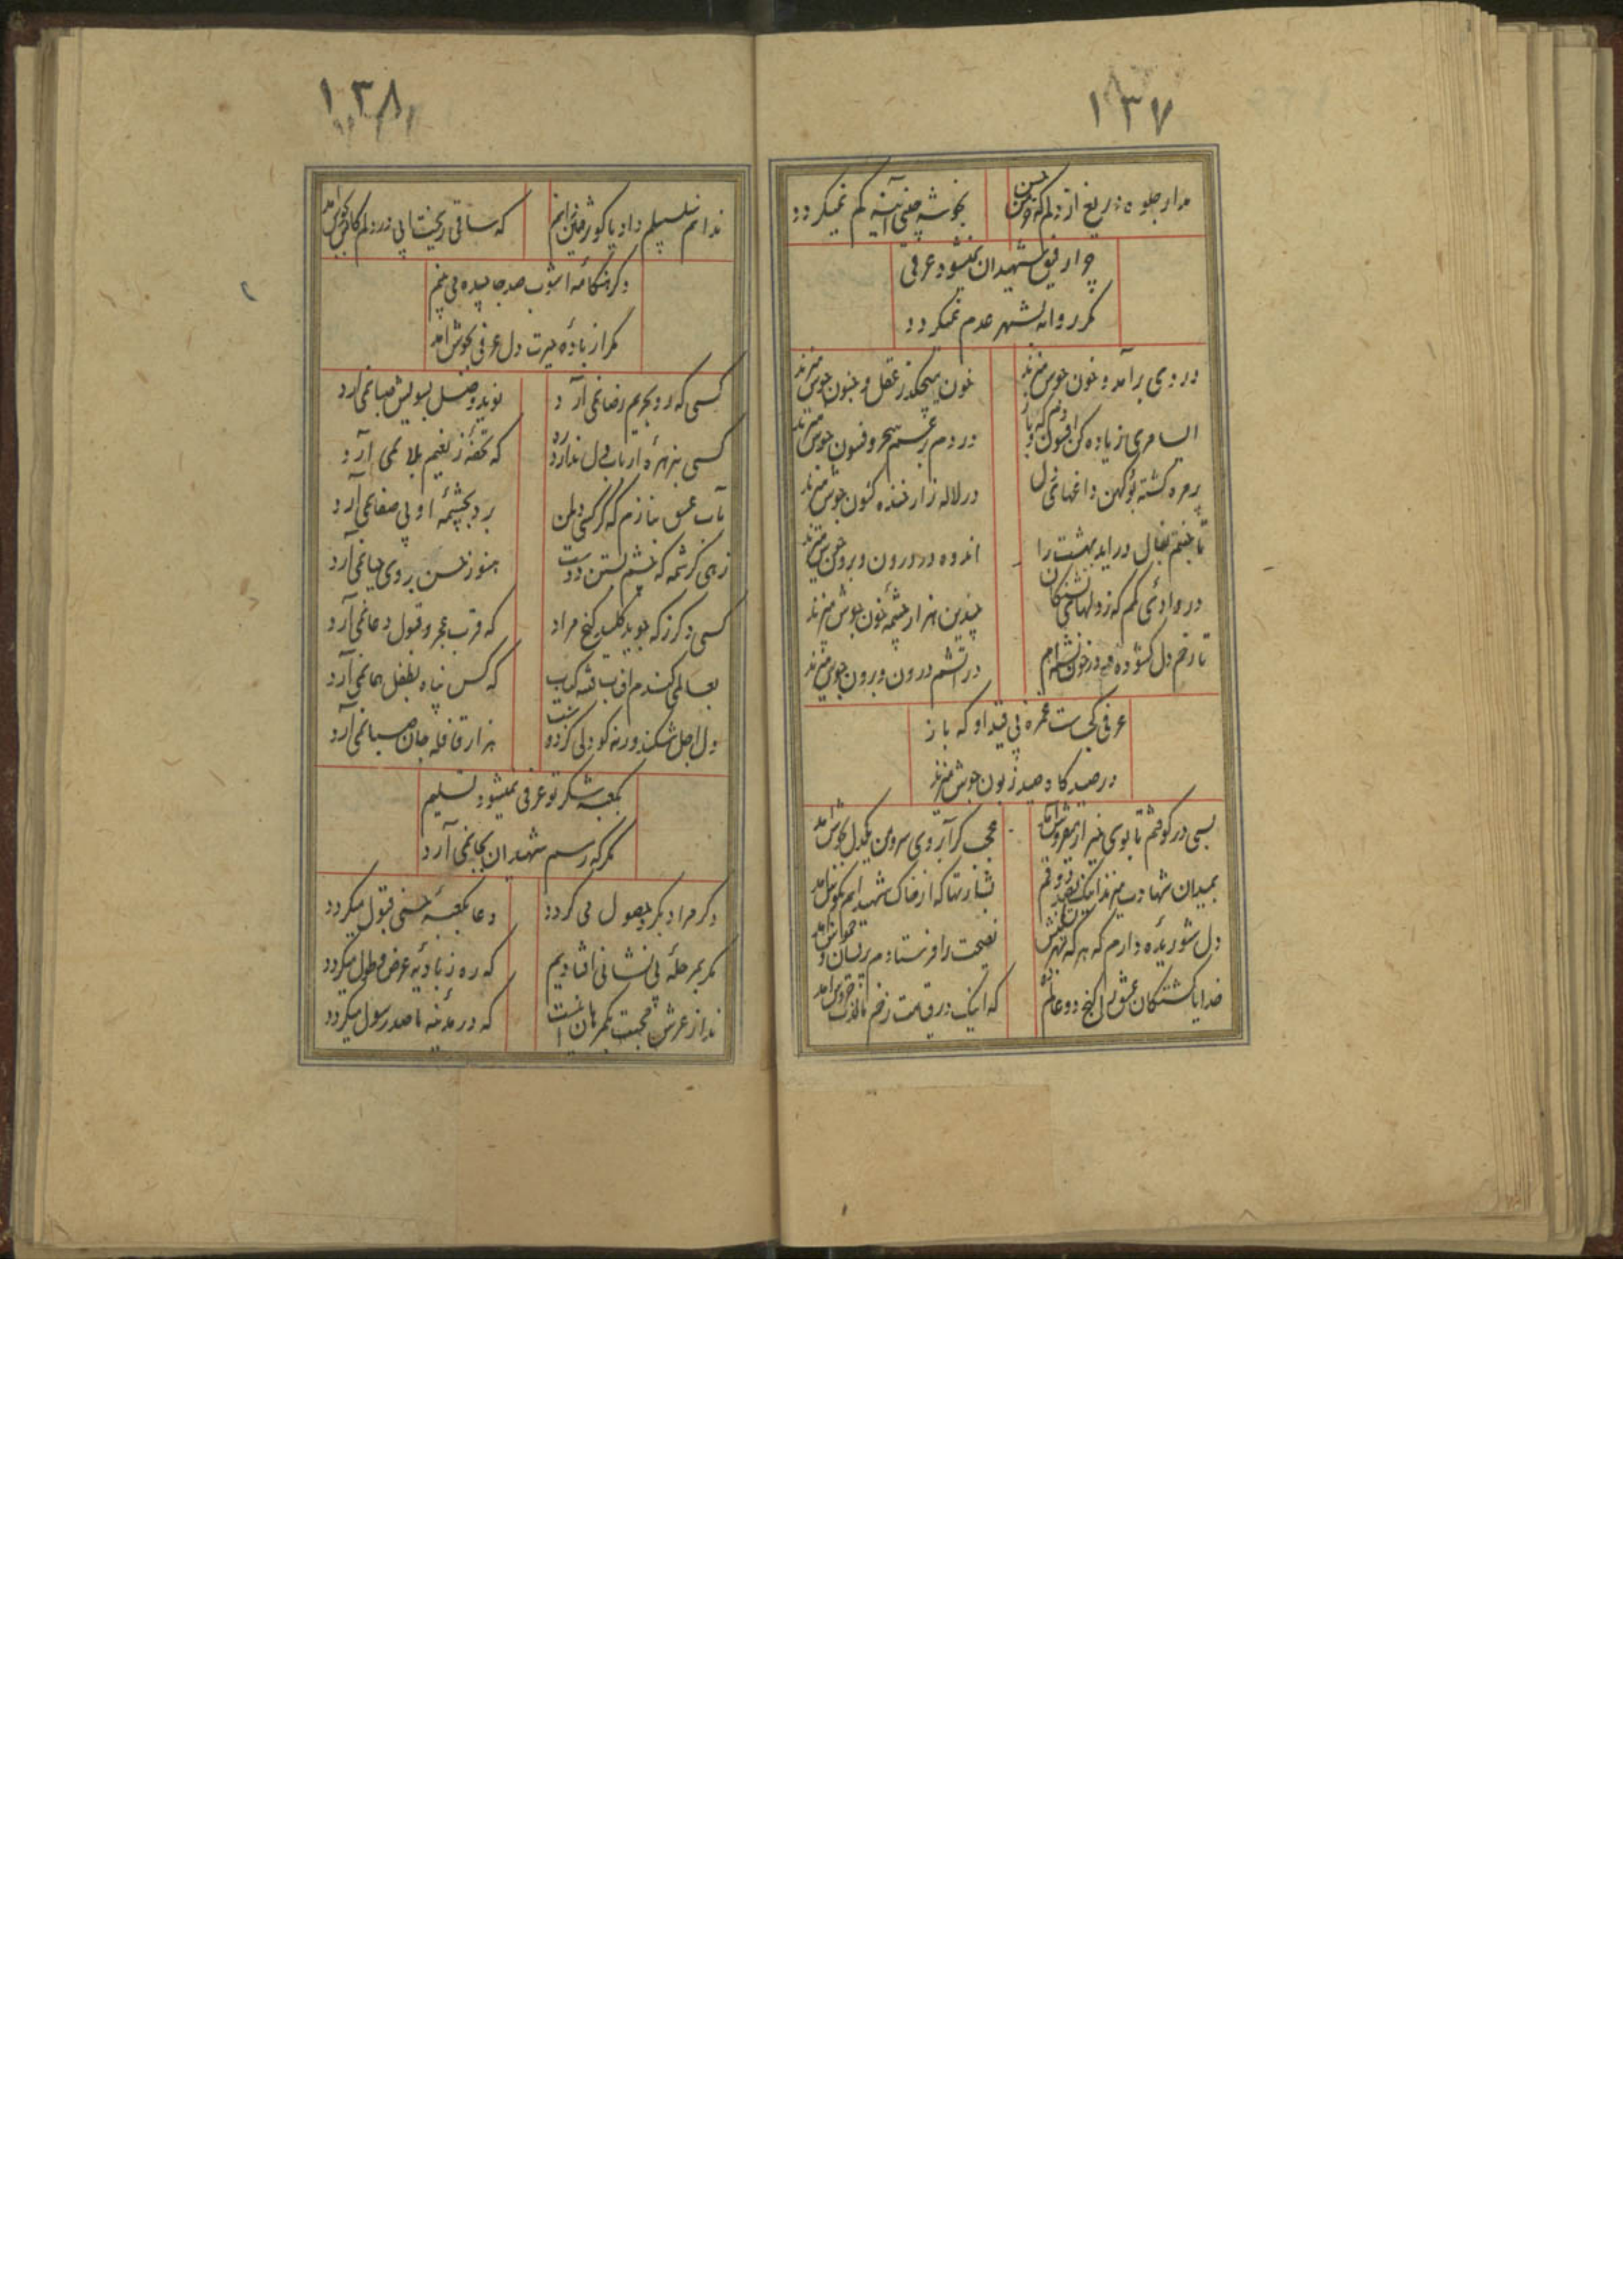 ۱۳۷
مدار جلوه دریغ از دلم که حسن
بخوشه چینی آئینه کم نمیکردد
چو ار فیق شهیدان نمیشود عرفی
مکر روانه بشهر عدم نمیکردد
دردی برآمد و خون جوش میزند
خون میچکد ز عقل و جنون جوش میزند
السامری زیاده کن افسون که
در دم بر غم سحر و فسون جوش میزند
کشته بوکهن داغهای دل
در لاله زار خنده کنون جوش میزند
تا خیال در آید بهشت را
اندوه در درون و برون جوش میزند
در وادئی کم که ز دلهای تشنکان
چندین هزار چشمه خون جوش میزند
تا زخم دل کشوده
در آتشم درون و برون جوش میزند
عرفی کجاست غمزه بی قید او که باز
در صد کا و صید زبون جوش میزند
بسی در کوفتم تا بوی خیر از میفروش آمد
عجب کر آبروی سر و من یکدل بجوش آمد
بمیدان شهادت میزند اینک
بشارتها که از خاک شهیدانم بکوش آمد
دل شوریده دارم که هر که
نصیحت را فرستادم پریشان و آمد
خدایا کشتکان عشق را کنج دو عالم ده
که اینک در قیامت زخم ما آمد
۱۳۸
ندانم سلسبیلم داد یا کوثر
که ساقی ریخت آبی در دلم آمد
دکر هنکامه آشوب صد جا چیده می بینم
مکر از باده حیرت دل عرفی بجوش آمد
کسی که رو بحریم رضا نمی آرد
نوید وصل بسویش صبا نمی آرد
کسی بزهره ارباب دل ندارد
که تحفه ز نعیم بلا نمی آرد
بآب عشق بنازم که کر کسی دامن
برد بچشمه او بی صفا نمی آرد
زهی کرشمه که چشم بستن دوست
هنوز حسن بروی حیا نمی آرد
کسی دکر ز که جوید کلید کنج مراد
که قرب عجز و قبول دعا نمی آرد
بعالمی کندم آفتاب
که کس پناه بظل هما نمی آرد
دل اجل شکند ورنه کو دلی کزدوست
هزار قافله جان صبا نمی آرد
بکعبه شکر تو عرفی نمیشود تسلیم
مکر که رسم شهیدان بجا نمی آرد
دکر مراد بکر حصول می کردد
دعا بکعبه حسنی قبول میکردد
مکر بمرحله بی نشانی افتادیم
که ره ز بادیه عرض و طول میکردد
ندا ز عرش محبت
که در مدینه ما صد رسول میکردد